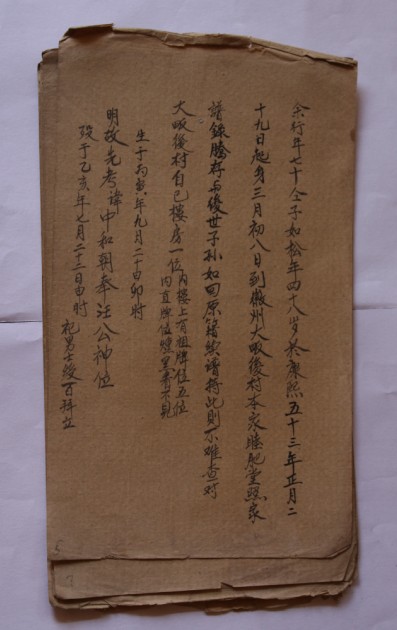 余行年七十仝子如松年四十八岁於康熙五十三年正月二
十九日起身三月初八日到徽州大畈後村本家继肥堂照家
谱錄腾存与後世子孙如回原籍续谱将此則不难查对
大畈後村自己楼房一位內楼上有祖牌位五位
內直牌位煙呈看不見
生于丙寅年九月二十日卯时
明故先考諱中和朝奉汪公神位
殁于乙亥年七月二十三日申时
祀男士绶百拜立